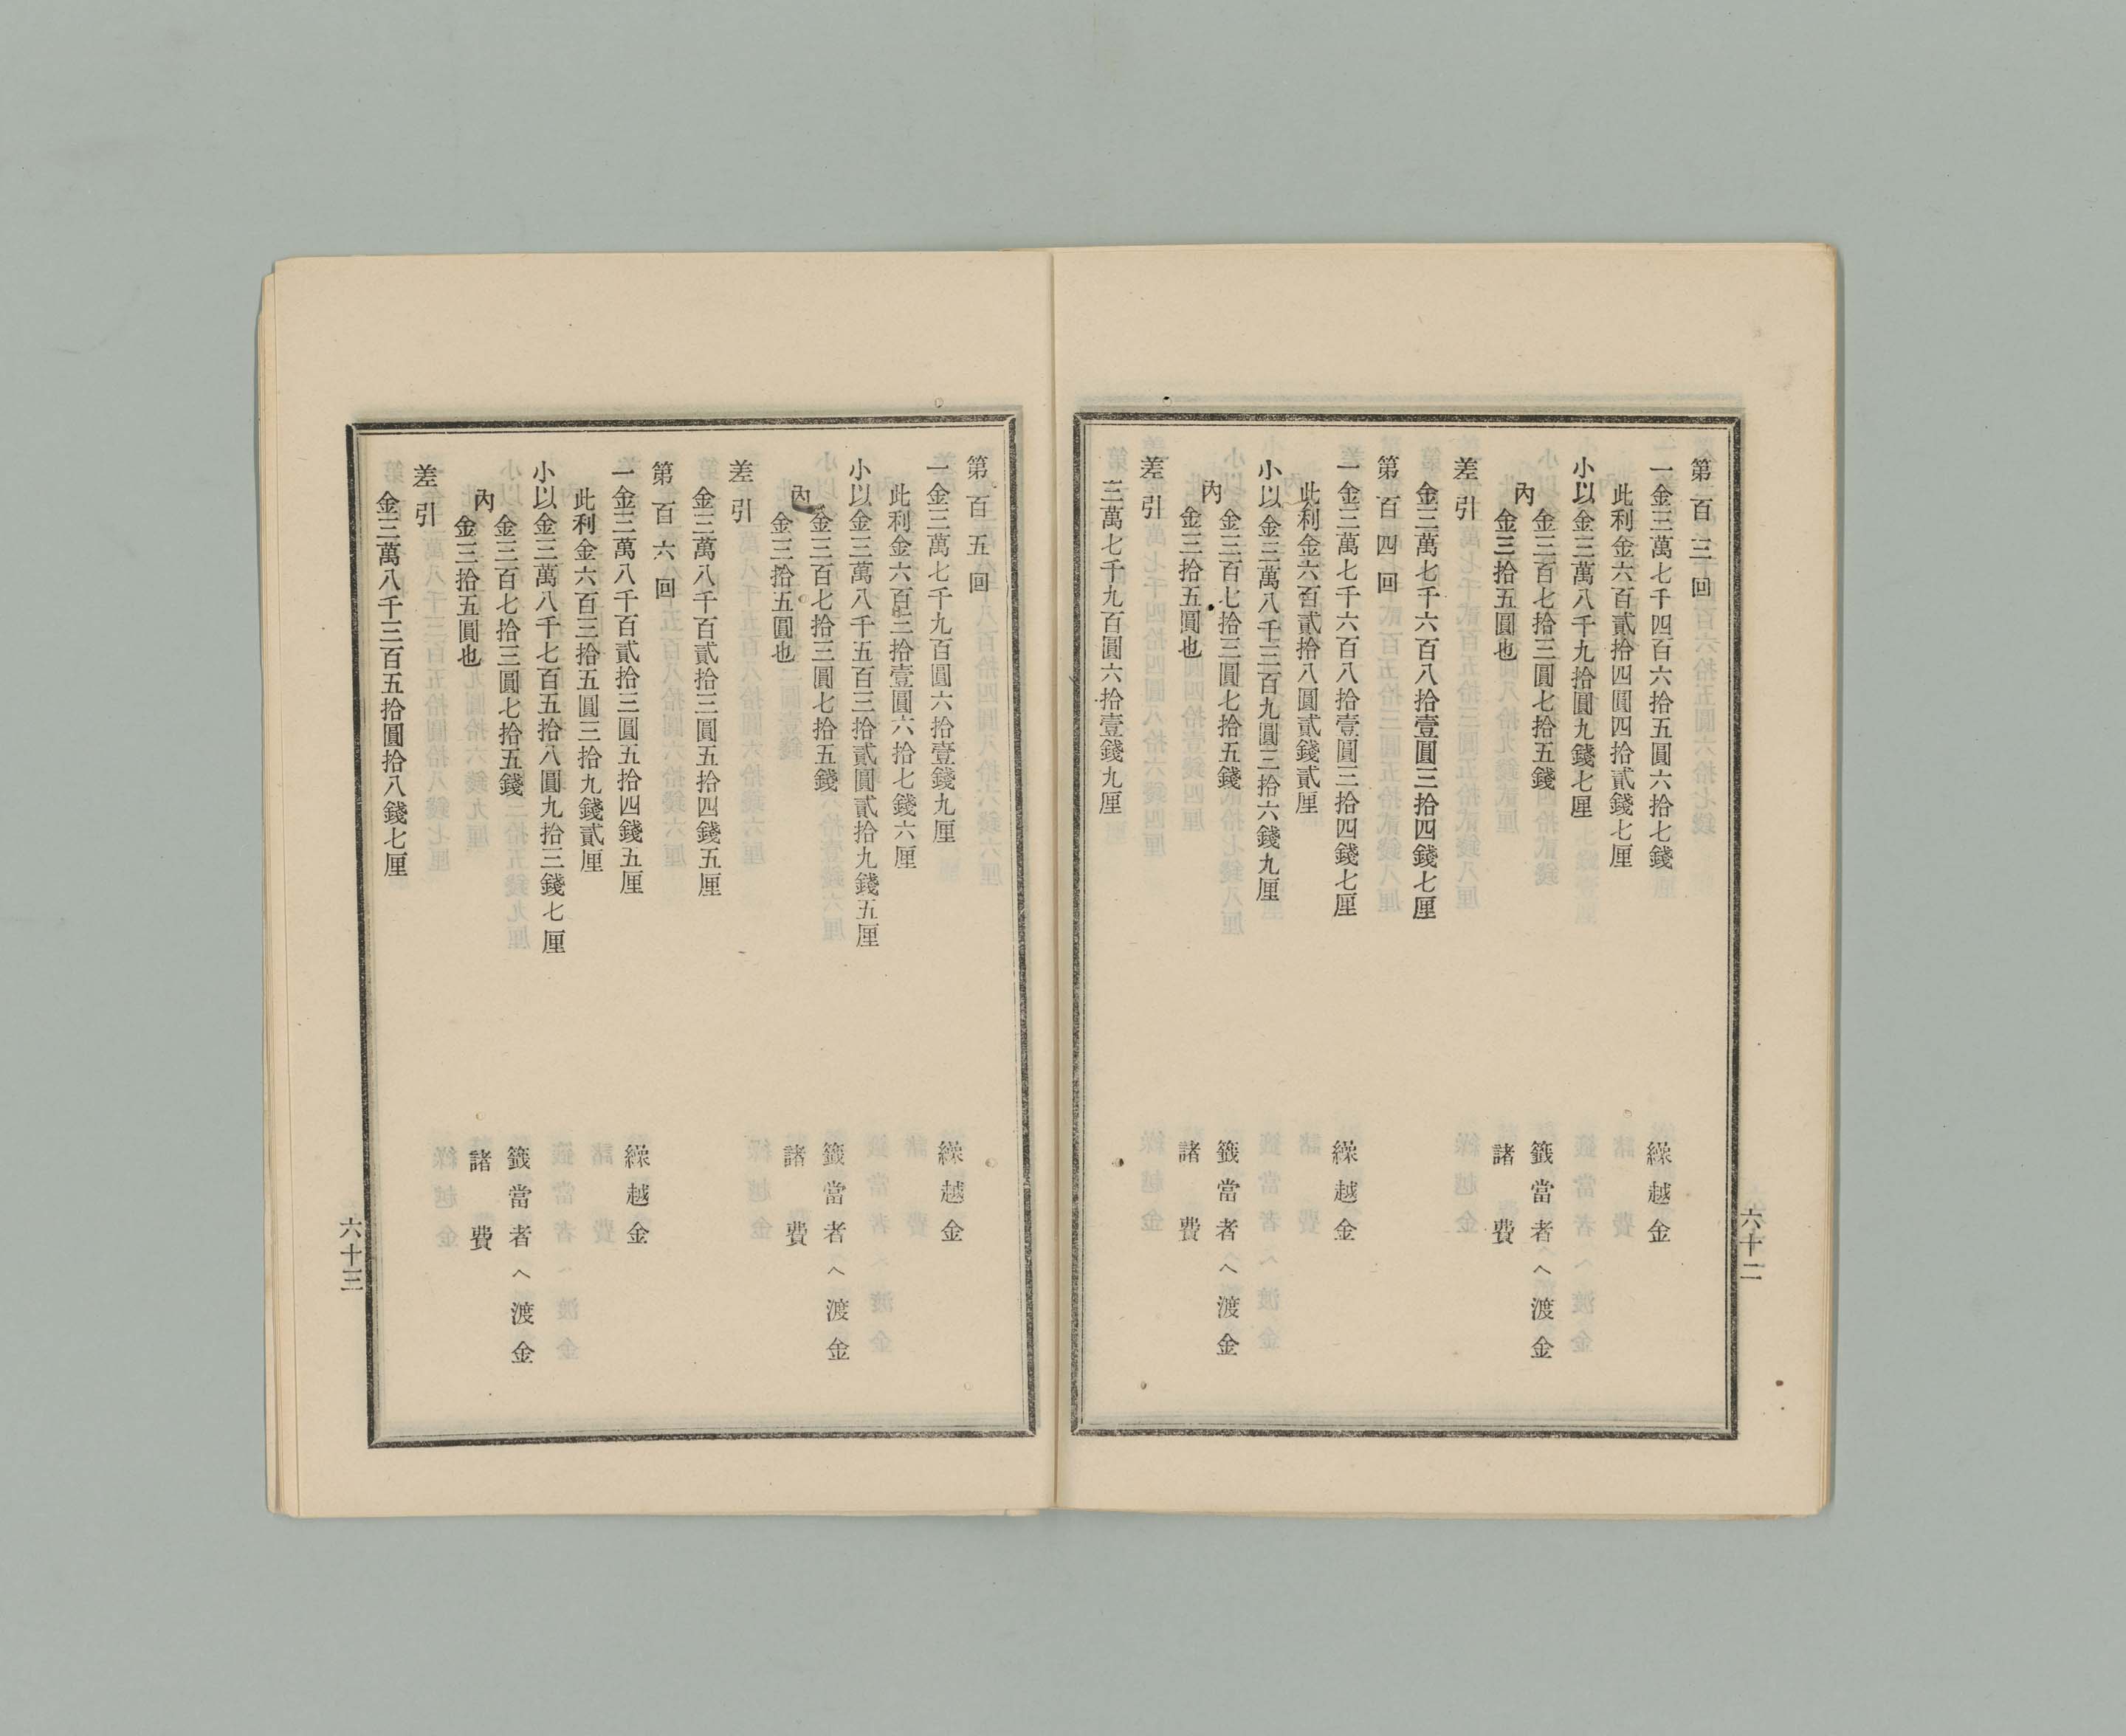 第百三回
一金三萬七千四百六拾五圓六拾七錢 繰越金
此利金六百貳拾四圓四拾貳錢七厘
小以金三萬八千九拾圓九錢七厘
內
金三百七拾三圓七拾五錢 籤當者へ渡金
金三拾五圓也 諸費
差引
金三萬七千六百八拾壹圓三拾四錢七厘
第百四回
一金三萬七千六百八拾壹圓三拾四錢七厘 繰越金
此利金六百貳拾八圓貳錢貳厘
小以金三萬八千三百九圓三拾六錢九厘
內
金三百七拾三圓七拾五錢 籤當者へ渡金
金三拾五圓也 諸費
差引
三萬七千九百圓六拾壹錢九厘
六十二
第百五回
一金三萬七千九百圓六拾壹錢九厘 繰越金
此利金六百三拾壹圓六拾七錢六厘
小以金三萬八千五百三拾貳圓貳拾九錢五厘
內
金三百七拾三圓七拾五錢 籤當者へ渡金
金三拾五圓也 諸費
差引
金三萬八千百貳拾三圓五拾四錢五厘
第百六回
一金三萬八千百貳拾三圓五拾四錢五厘 繰越金
此利金六百三拾五圓三拾九錢貳厘
小以金三萬八千七百五拾八圓九拾三錢七厘
內
金三百七拾三圓七拾五錢 籤當者へ渡金
金三拾五圓也 諸費
差引
金三萬八千三百五拾圓拾八錢七厘
六十三